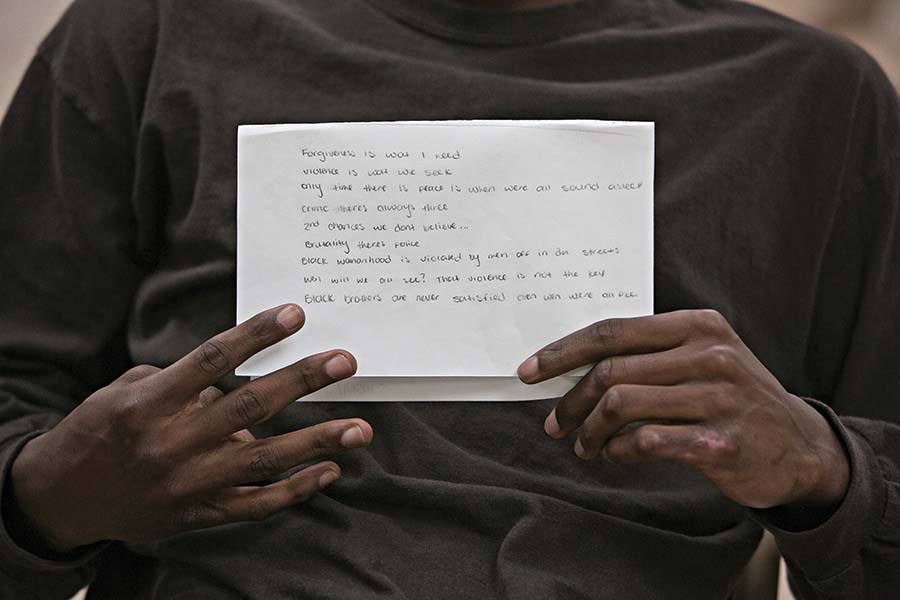 Forgiveness is wat I need
violence is wat we seek
only time there is peace is when were all sound asleep
crime theres always three
2nd chances we dont believe...
Brutality theres Police
Black womanhood is violated by men off in da streets
wen will we all see? That violence is not the key
Black brothers are never satisfied even wen were all free